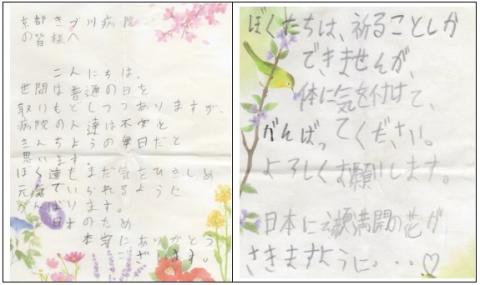 京都きづ川病院
の皆様へ
こんにちは。
世間は普通の日を
取りもどしつつありますが、
病院の人達は不安と
きんちょうの毎日だと
思います。
ぼく達もまだ気をひきしめ
元気でいられるように
がんばります。
日本のため
本当にありがとう
ございます。
ぼくたちは、祈ることしか
できませんが、
体に気を付けて、
がんばってください。
よろしくお願いします。
日本に笑顔満開の花が
さきますように・・・♡